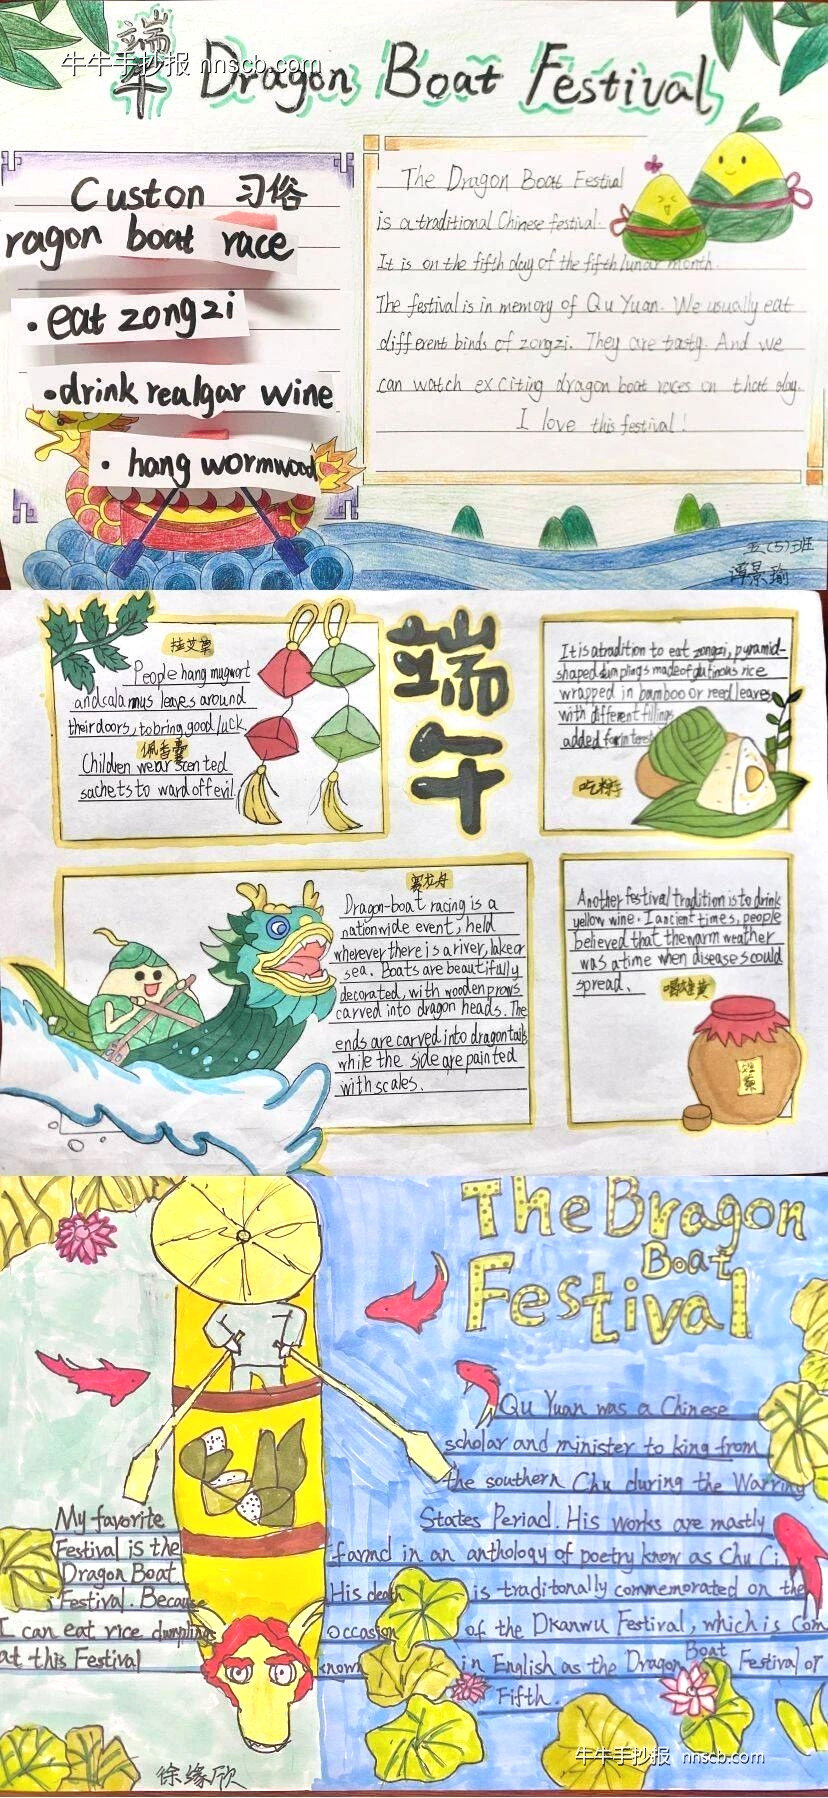 端午 Dragon Boat Festival
牛牛手抄报 nnscb.com
Custon 习俗
ragon boat race
·eat zongzi
·drink realgar wine
· hang wormwood
The Dragon Boat Festival
is a traditional Chinese festival.
It is on the fifth day of the fifth lunar month.
The festival is in memory of Qu Yuan. We usually eat
different binds of zongzi. They are tasty. And we
can watch exciting dragon boat races on that day.
I love this festival!
五(5)班
谭景瑜
挂艾草
People hang mugwort
and calamus leaves around
their doors, to bring good luck.
佩香囊
Children wear scented
sachets to ward off evil
端午
It is a tradition to eat zongzi, pyramid-
shaped dumplings made of glutinous rice
wrapped in bamboo or reed leaves
with different fillings
added for interest
吃粽子
赛龙舟
Dragon-boat racing is a
nationwide event, held
wherever there is a river, lake or
sea. Boats are beautifully
decorated, with wooden prows
carved into dragon heads. The
ends are carved into dragon tails
while the side are painted
with scales.
Another festival tradition is to drink
yellow wine. I ancient times, people
believed that the warm weather
was a time when diseases could
spread.
喝雄黄
雄黄
The Bragon
Boat
Festival
Qu Yuan was a Chinese
scholar and minister to king from
the southern Chu during the Warring
States Periad. His works are mastly
farmd in an anthology of poetry know as Chu Ci
His death is traditonally commemorated on the
occasion of the Dkanwu Festival, which is Com
known in English as the Dragon Boat Festival or
Fifth.
My favorite
Festival is the
Dragon Boat
Festival. Because
I can eat rice dumplings
at this Festival
徐缘欣
牛牛手抄报 nnscb.com